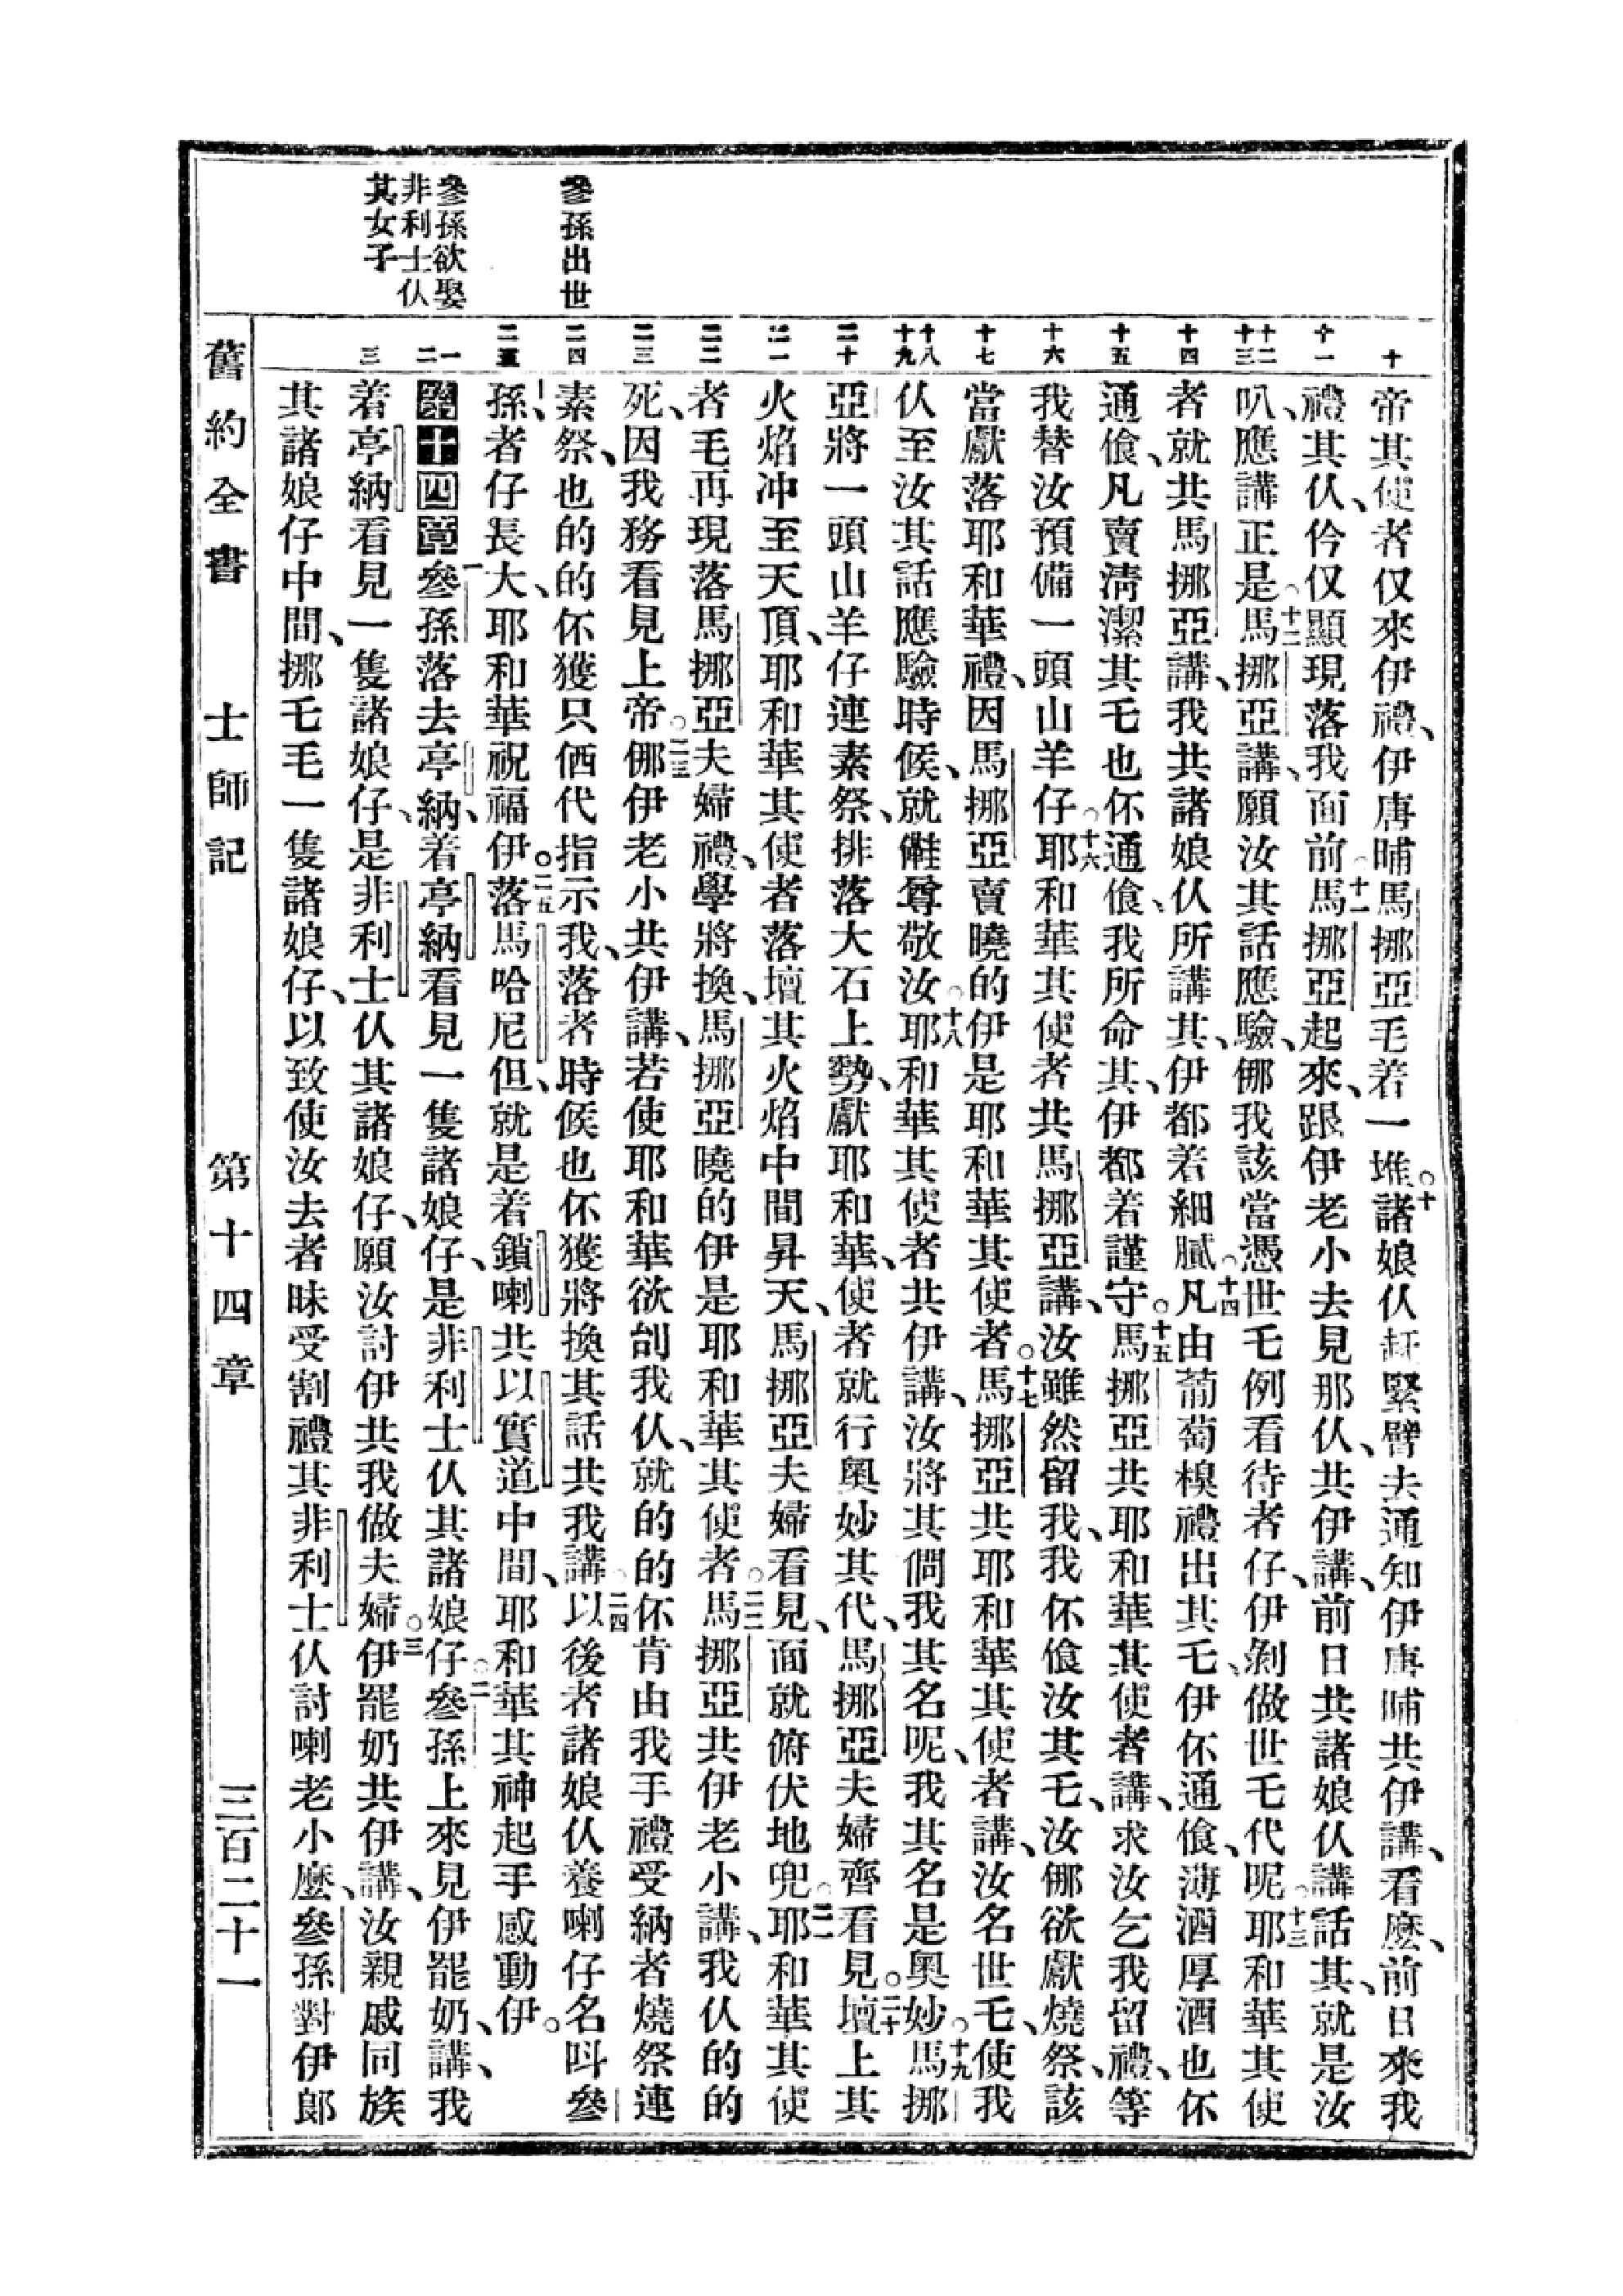 參孫出世
參孫欲娶
非利士仈
其女子
十
十一
十二
十三
十四
十五
十六
十七
十八
十九
二十
二一
二二
二三
二四
二五
一
二
三
帝其使者仅來伊禮、伊唐晡馬挪亞毛着一堆。十諸娘仈赶緊躃去通知伊唐晡共伊講、看麽、前日來我
禮其仈、伶仅顯現落我面前。十一馬挪亞起來、跟伊老小去見那仈、共伊講、前日共諸娘仈講話其、就是汝
叭、應講正是。十二馬挪亞講、願汝其話應驗、㑚我該當憑世乇例看待者仔、伊剝做世乇代呢。十三耶和華其使
者就共馬挪亞講、我共諸娘仈所講其、伊都着細膩。十四凡由葡萄樑禮出其乇、伊伓通飡、薄酒厚酒也伓
通飡、凡賣淸潔其乇也伓通飡、我所命其、伊都着謹守。十五馬挪亞共耶和華其使者講、求汝乞我留禮、等
我替汝預備一頭山羊仔。十六耶和華其使者共馬挪亞講、汝雖然留我、我伓飡汝其乇、汝㑚欲獻燒祭、該
當獻落耶和華禮、因馬挪亞賣曉的伊是耶和華其使者。十七馬挪亞共耶和華其使者講、汝名世乇、使我
仈至汝其話應驗時候、就儺尊敬汝。十八耶和華其使者共伊講、汝將其倜我其名呢、我其名是奥妙。十九馬挪
亞將一頭山羊仔連素祭、排落大石上勢、獻耶和華、使者就行奥妙其代、馬挪亞夫婦齊看見。二十壇上其
火焰冲至天頂、耶和華其使者落壇其火焰中間昇天、馬挪亞夫婦看見、面就俯伏地兜。二一耶和華其使
者毛再現落馬挪亞夫婦禮、學將換、馬挪亞曉的伊是耶和華其使者。二二馬挪亞共伊老小講、我仈的的
死、因我務看見上帝。二三㑚伊老小共伊講、若使耶和華欲刣我仈、就的的伓肯由我手禮受納者燒祭連
素祭、也的的伓獲只㑚代指示我、落者時候也伓獲將換其話共我講。二四以後者諸娘仈養喇仔名呌參
孫、者仔長大、耶和華祝福伊。二五落馬哈尼但、就是着鎖喇共以實道中間、耶和華其神起手感動伊。
第十四章一參孫落去亭納、着亭納看見一隻諸娘仔、是非利士仈其諸娘仔。二參孫上來見伊罷奶、講、我
着亭納看見一隻諸娘仔、是非利士仈其諸娘仔、願汝討伊共我做夫婦。三伊罷奶共伊講、汝親戚同族
其諸娘仔中間、挪乇毛一隻諸娘仔、以致使汝去者昧受割禮其非利士仈討喇老小麽、參孫對伊郞
舊約全書　士師記　第十四章　三百二十一